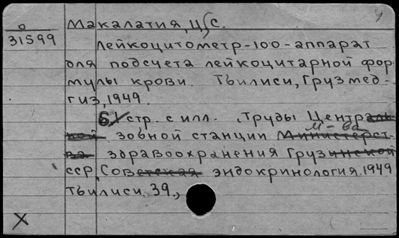 Макалатия, Ц/С.
0
31599
Лейкоцитометр-100-аппарат
для подсчета лейкоцитарной фор
мулы крови. Тбилиси, Грузмед-
гиз, 1949.
6 стр. с илл. Труды Централь
ной зобной станции Министерст М-ва
ва здравоохранения Грузинской
сср, Советская эндокринология. 1949
Тбилиси. 39,,
X